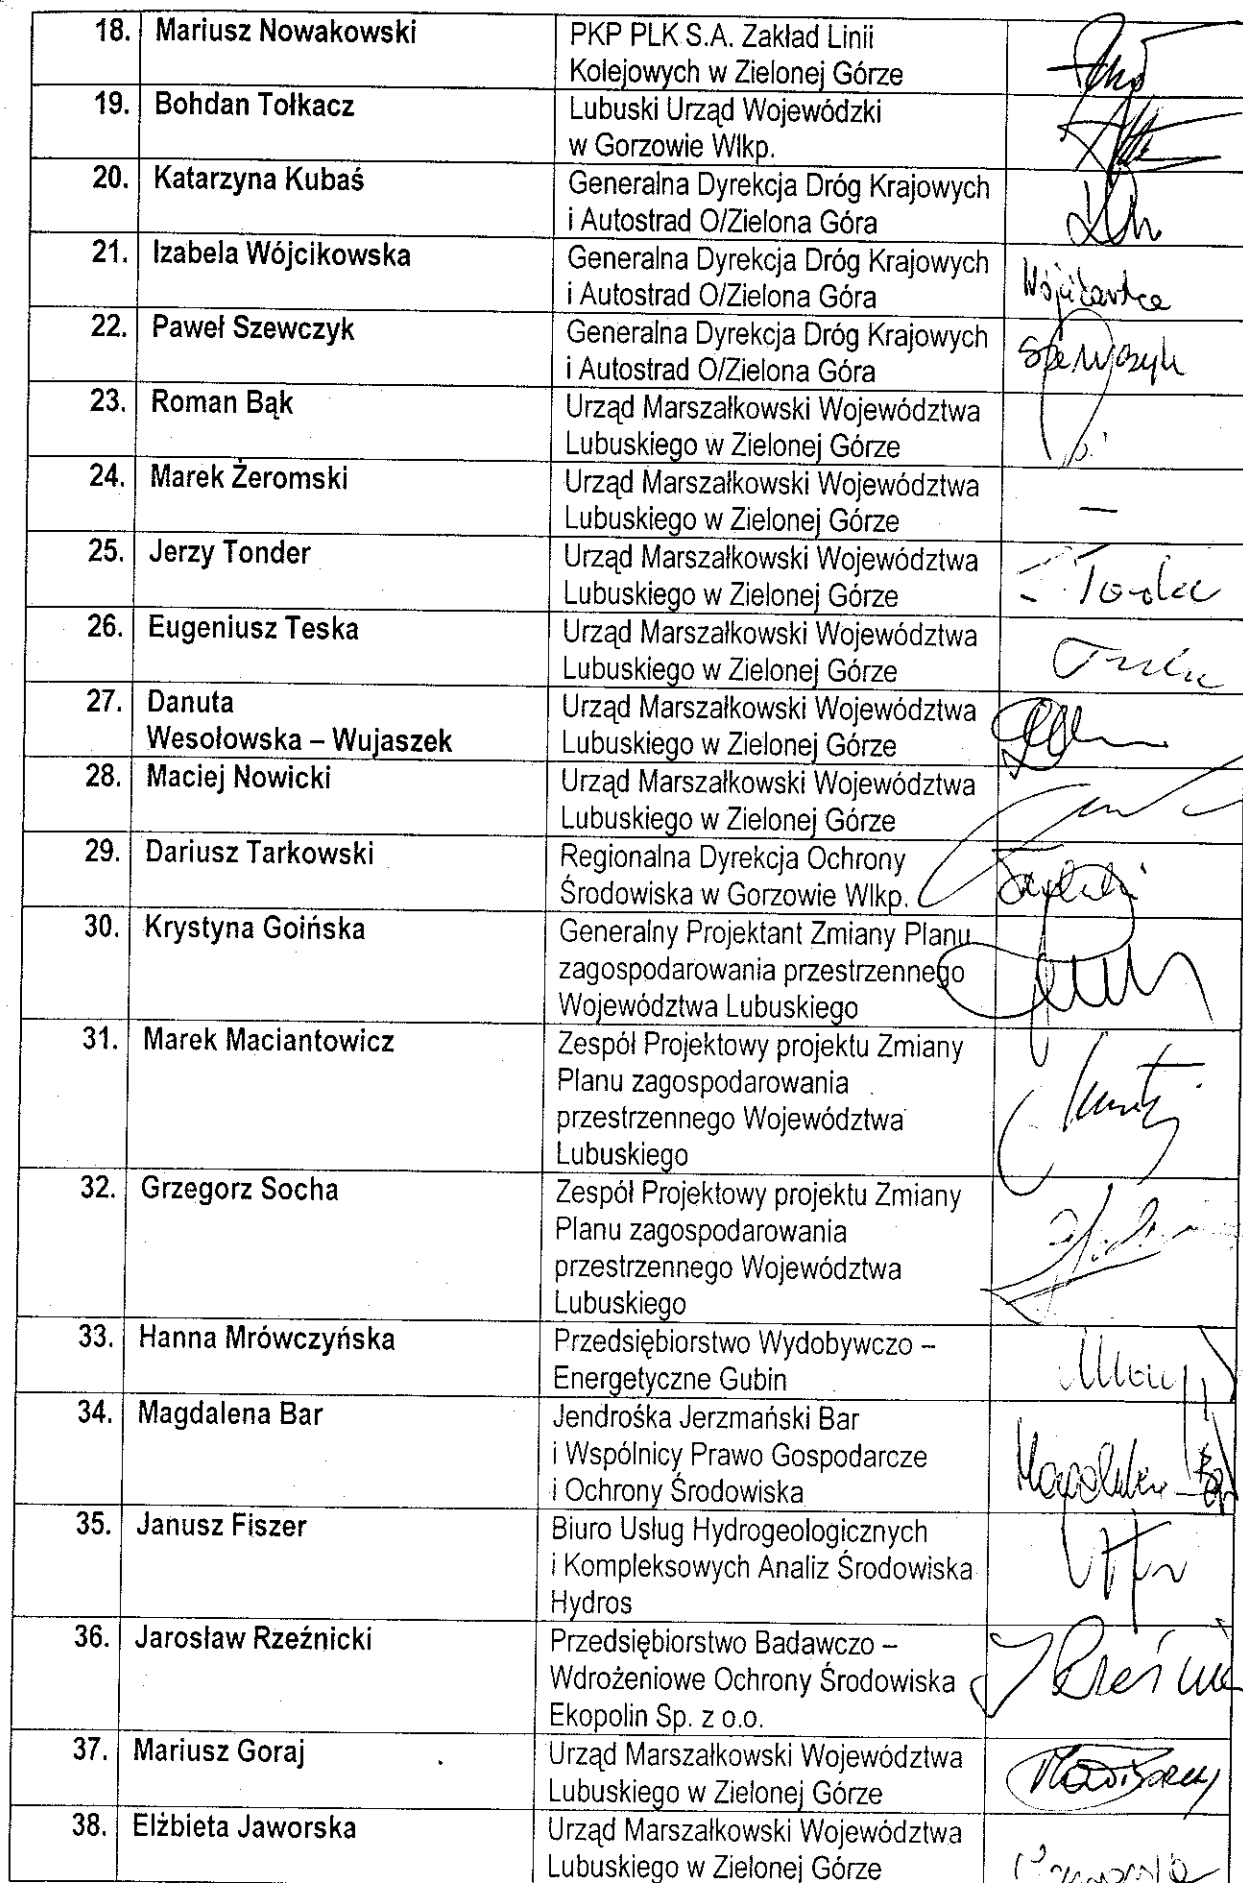 18. Mariusz Nowakowski PKP PLK S.A. Zakład Linii
Kolejowych w Zielonej Górze
19. Bohdan Tołkacz Lubuski Urząd Wojewódzki
w Gorzowie Wlkp.
20. Katarzyna Kubaś Generalna Dyrekcja Dróg Krajowych
i Autostrad O/Zielona Góra
21. Izabela Wójcikowska Generalna Dyrekcja Dróg Krajowych
i Autostrad O/Zielona Góra
22. Paweł Szewczyk Generalna Dyrekcja Dróg Krajowych
i Autostrad O/Zielona Góra Szewczyk
23. Roman Bąk Urząd Marszałkowski Województwa
Lubuskiego w Zielonej Górze
24. Marek Żeromski Urząd Marszałkowski Województwa
Lubuskiego w Zielonej Górze –
25. Jerzy Tonder Urząd Marszałkowski Województwa
Lubuskiego w Zielonej Górze
26. Eugeniusz Teska Urząd Marszałkowski Województwa
Lubuskiego w Zielonej Górze
27. Danuta Urząd Marszałkowski Województwa
Wesołowska – Wujaszek Lubuskiego w Zielonej Górze
28. Maciej Nowicki Urząd Marszałkowski Województwa
Lubuskiego w Zielonej Górze
29. Dariusz Tarkowski Regionalna Dyrekcja Ochrony
Środowiska w Gorzowie Wlkp.
30. Krystyna Goińska Generalny Projektant Zmiany Planu
zagospodarowania przestrzennego
Województwa Lubuskiego
31. Marek Maciantowicz Zespół Projektowy projektu Zmiany
Planu zagospodarowania
przestrzennego Województwa
Lubuskiego
32. Grzegorz Socha Zespół Projektowy projektu Zmiany
Planu zagospodarowania
przestrzennego Województwa
Lubuskiego
33. Hanna Mrówczyńska Przedsiębiorstwo Wydobywczo –
Energetyczne Gubin
34. Magdalena Bar Jendrośka Jerzmański Bar
i Wspólnicy Prawo Gospodarcze
i Ochrony Środowiska
35. Janusz Fiszer Biuro Usług Hydrogeologicznych
i Kompleksowych Analiz Środowiska
Hydros
36. Jarosław Rzeźnicki Przedsiębiorstwo Badawczo –
Wdrożeniowe Ochrony Środowiska
Ekopolin Sp. z o.o.
37. Mariusz Goraj Urząd Marszałkowski Województwa
Lubuskiego w Zielonej Górze
38. Elżbieta Jaworska Urząd Marszałkowski Województwa
Lubuskiego w Zielonej Górze